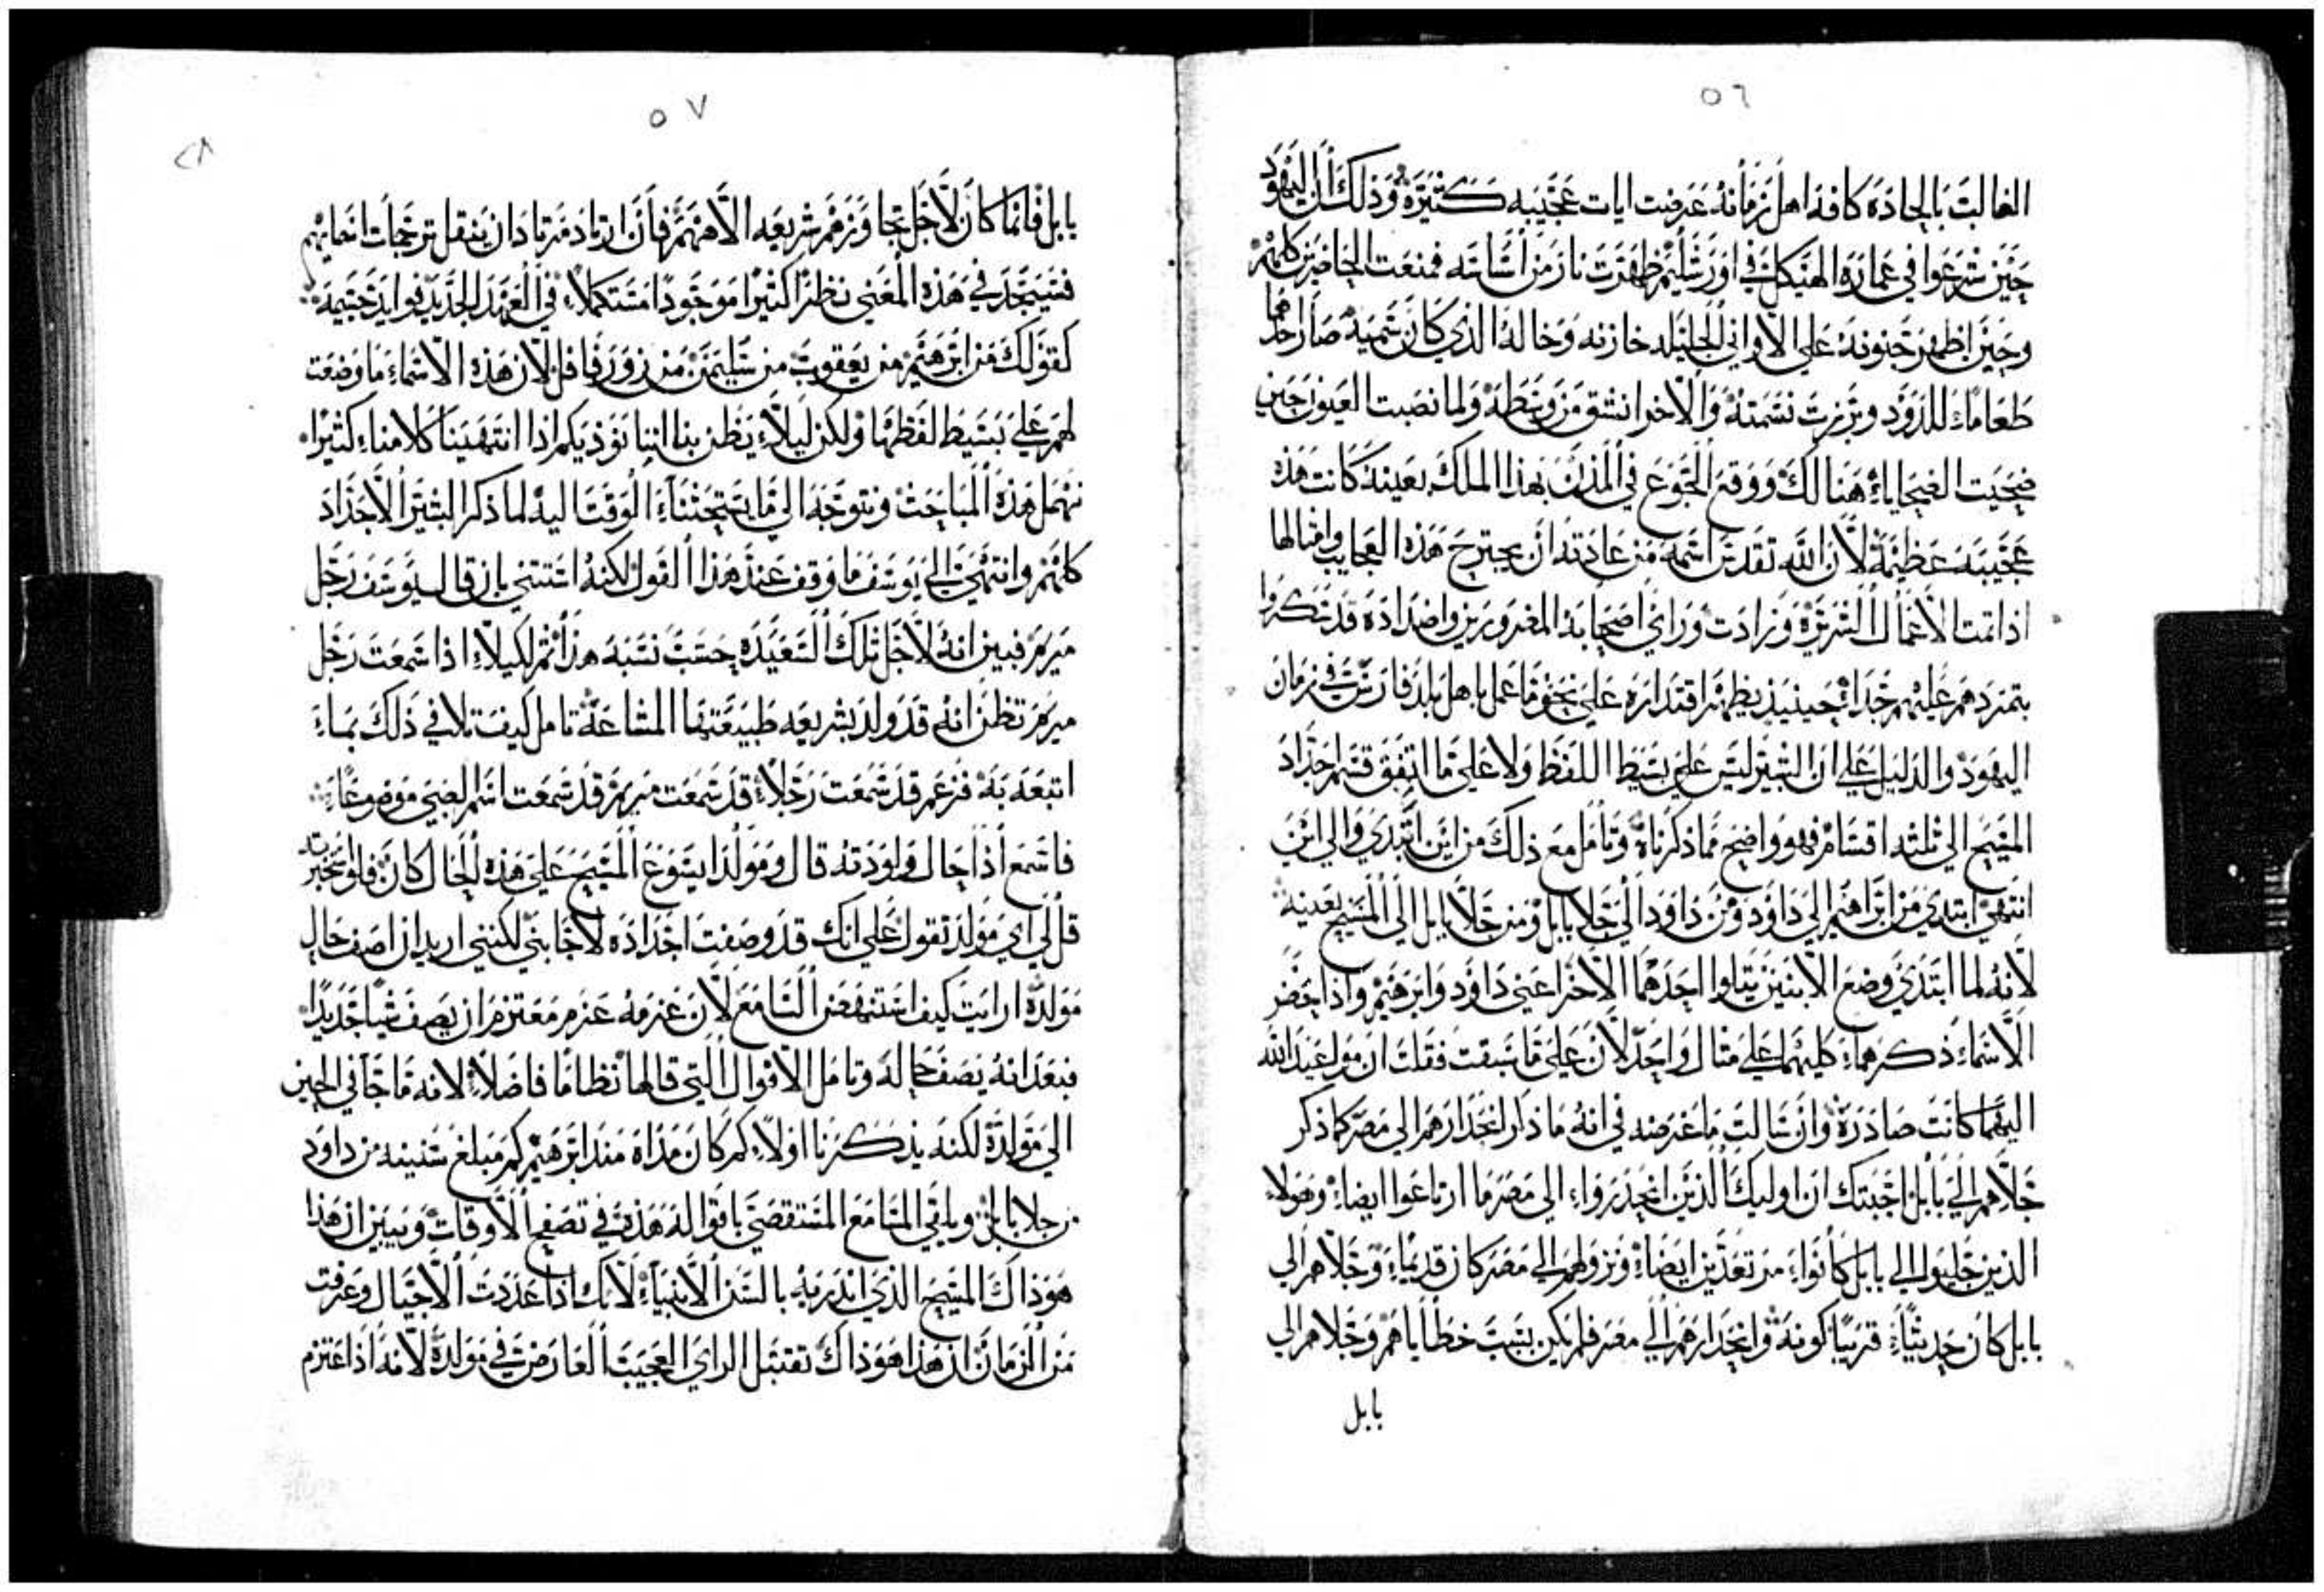 ٥٦
الغالب بالحاده كافه اهل زمانه عرضت ايات عجيبه كثيره وذلك ان اليهود
حين شرعوا في عماره الهيكل في اورشليم ظهرت نار من اساسه فمنعت الحاضرين كلهم
وحين اظهر جنونه علي الاواني الجليله خازنه وخاله الذي كان سميه صار احدهما
طعاماء للدود وبرزت نسمته والاخر انشق من وسطه ولما نصبت العيون حين
ضحيت الضحاياء هنالك ووقع الجوع في المدن بهذا الملك بعينه كانت هذه
عجيبه عظيمة لان الله تقدس اسمه من عادته ان يجترح هذه العجايب وامثالها
اذا نمت الاعمال الشريرة وزادت وراي اصحابه المغرورين واضداده قد سكروا
بتمردهم عليهم جداء حينيذ يظهر اقتداره علي نحو ما عمل باهل بلد فارس في زمان
اليهود والدليل علي ان البشير ليس علي بسيط اللفظ ولا علي ما اتفق قسم اجداد
المسيح الي ثلثه اقسام فهو واضح مما ذكرناه وتامل مع ذلك من اين ابتدي والي اين
انتهي ابتدي من ابراهيم الي داود ومن داود الي جلا بابل ومن جلا بابل الي المسيح بعينه
لانه لما ابتدي وضع الابنين يتلوا احدهما الاخر اعني داود وابرهيم واذا حضر
الاسماء ذكرهماء كليهما علي مثال واحد لان علي ما سبقت فقلت ان مواعيد الله
اليهما كانت صادرة وان سالت ما غرضه في انه ما ذكر انحدارهم الي مصر كما ذكر
جلاهم الي بابل اجبتك ان اوليك الذين انحدرواء الي مصر ما ارتاعوا ايضاء وهولاء
الذين جليوا الي بابل كانواء مرتعدين ايضاء ونزولهم الي مصر كان قديماء وجلاهم الي
بابل كان حديثاء قريبا كونه وانحدارهم الي مصر فلم يكن بسبب خطاياهم وجلاهم الي
بابل
٥٧
٢٨
بابل فانما كان لاجل تجاوزهم شريعه الاههم فان اراد مرتاد ان ينقل ترجمات اسمايهم
فسيجد في هذه المعني نظرا كثيرا موجودا مستكملاء في العهد الجديد فوايد جسيمة
كقولك من ابرهيم من يعقوب من سليمن من زوربافل لان هذه الاسماء ما وضعت
لهم علي بسيط لفظها ولكن ليلاء يظن بنا اننا نوذيكم اذا انتهينا كلامناء كثيرا
نهمل هذه المباحث ونتوجه الي ما يستحثنا الوقت اليه لما ذكر البشير الاجداد
كلهم وانتهي الي يوسف ما وقف عند هذا القول لكنه استثني بان قال يوسف رجل
مريم فبين انه لاجل تلك السعيده حسب نسبه هذا ثم لكيلاء اذا سمعت رجل
مريم تظن انه قد ولد بشريعه طبيعتها المشاعة تامل كيف تلافي ذلك بماء
اتبعه به فزعم قد سمعت رجلاء قد سمعت مريم قد سمعت اسم الصبي موضوعاء
فاسمع اذا حال ولودته قال ومولد ايسوع المسيح علي هذه الحال كان فلو تخبرت
قل لي اي مولد تقول علي انك قد وصفت اجداده لاجابني لكنني اريد ان اصف حال
مولده ارايت كيف استنهض السامع لان عزمه عزم معتزم ان يصف شيا جديدا
فبعد انه يصف حاله وتامل الاقوال التي قالها نظاما فاضلاء لانه ما جا في الحين
الي مولدة لكنه يذكرنا اولاء كم كان مداه منذ ابرهيم كم مبلغ سنينه من داود
من جلا بابل وباقي السامع المستقصي باقواله هذه في تصفح الاوقات ويبين ان هذا
هو ذاك المسيح الذي انذر به بالسن الانبياء لانك اذا عددت الاجيال وعرفت
من الزمان ان هذا هو ذاك تقتبل الراي العجيب العارض في مولدة لانه اذا اعتزم